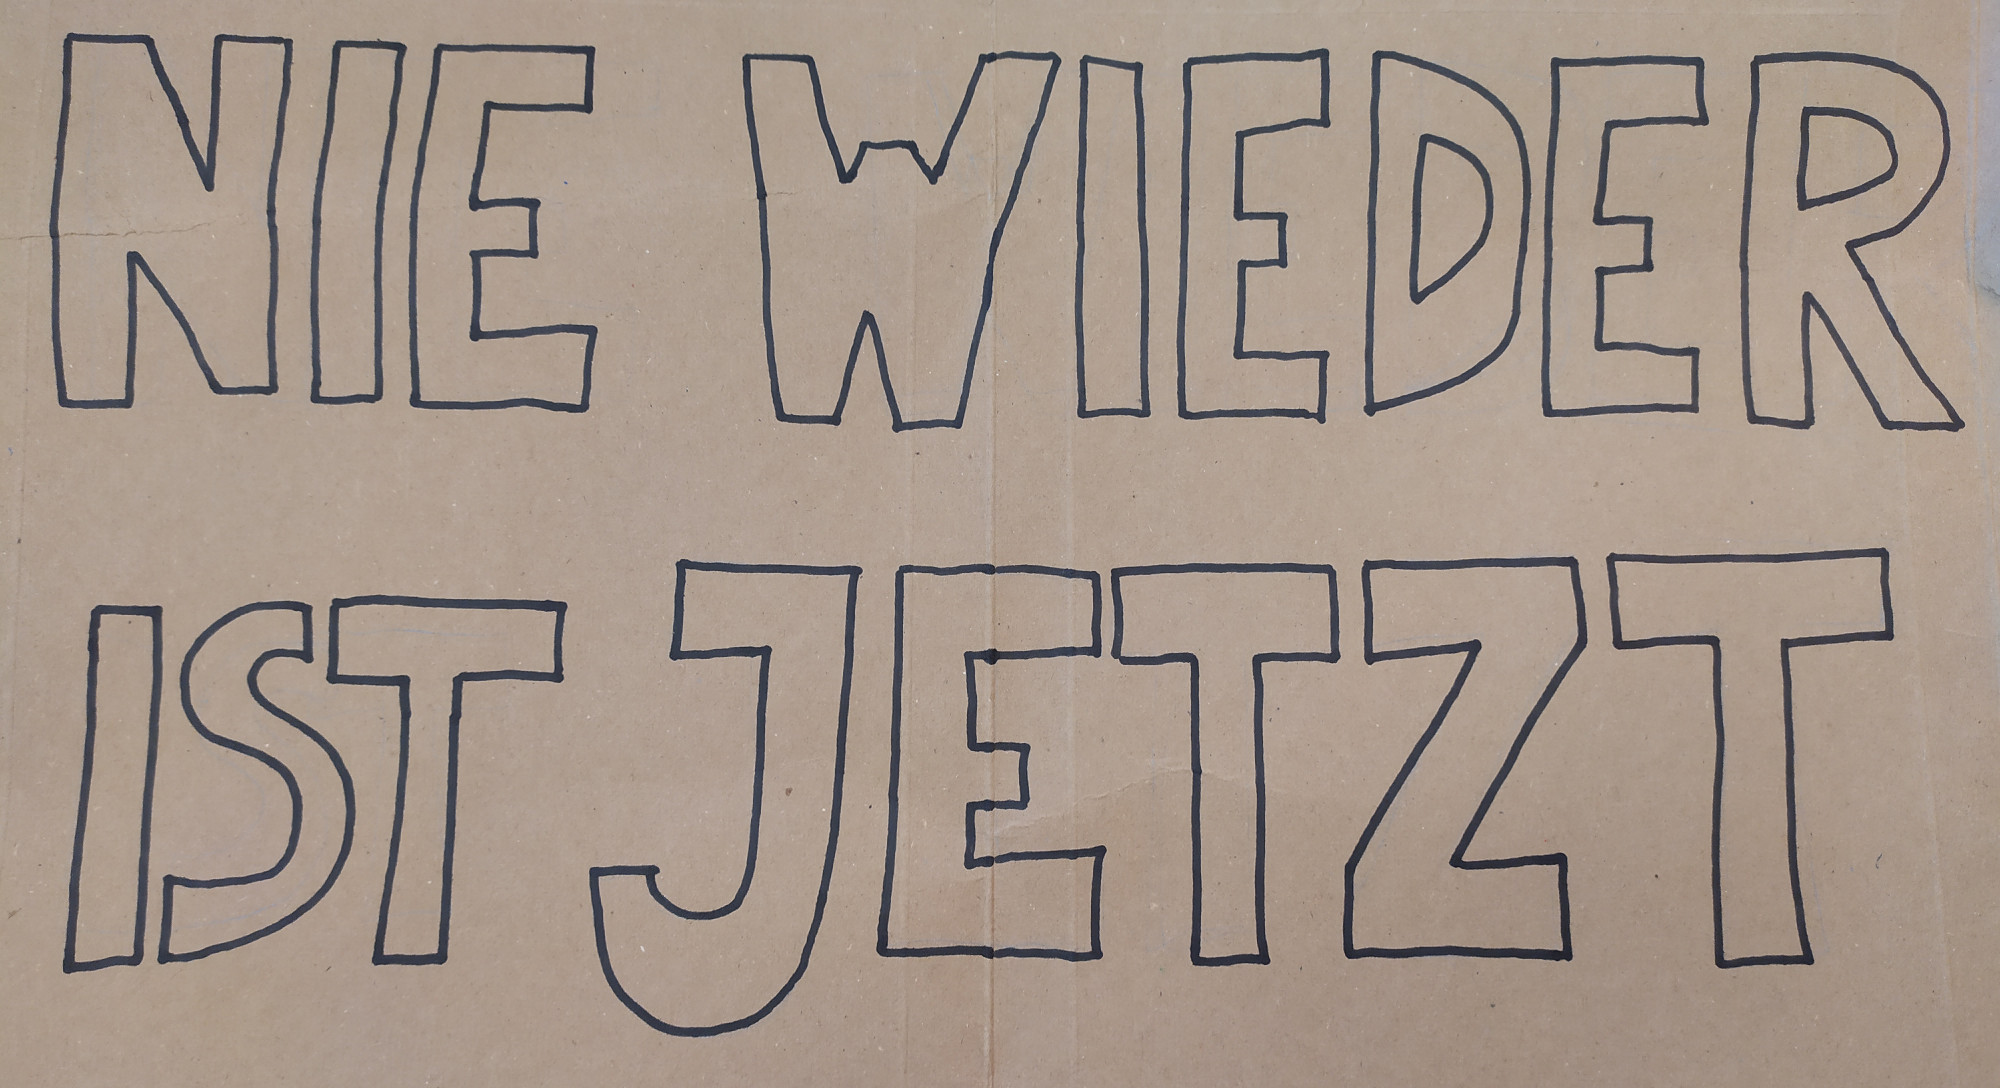 NIE WIEDER
IST JETZT